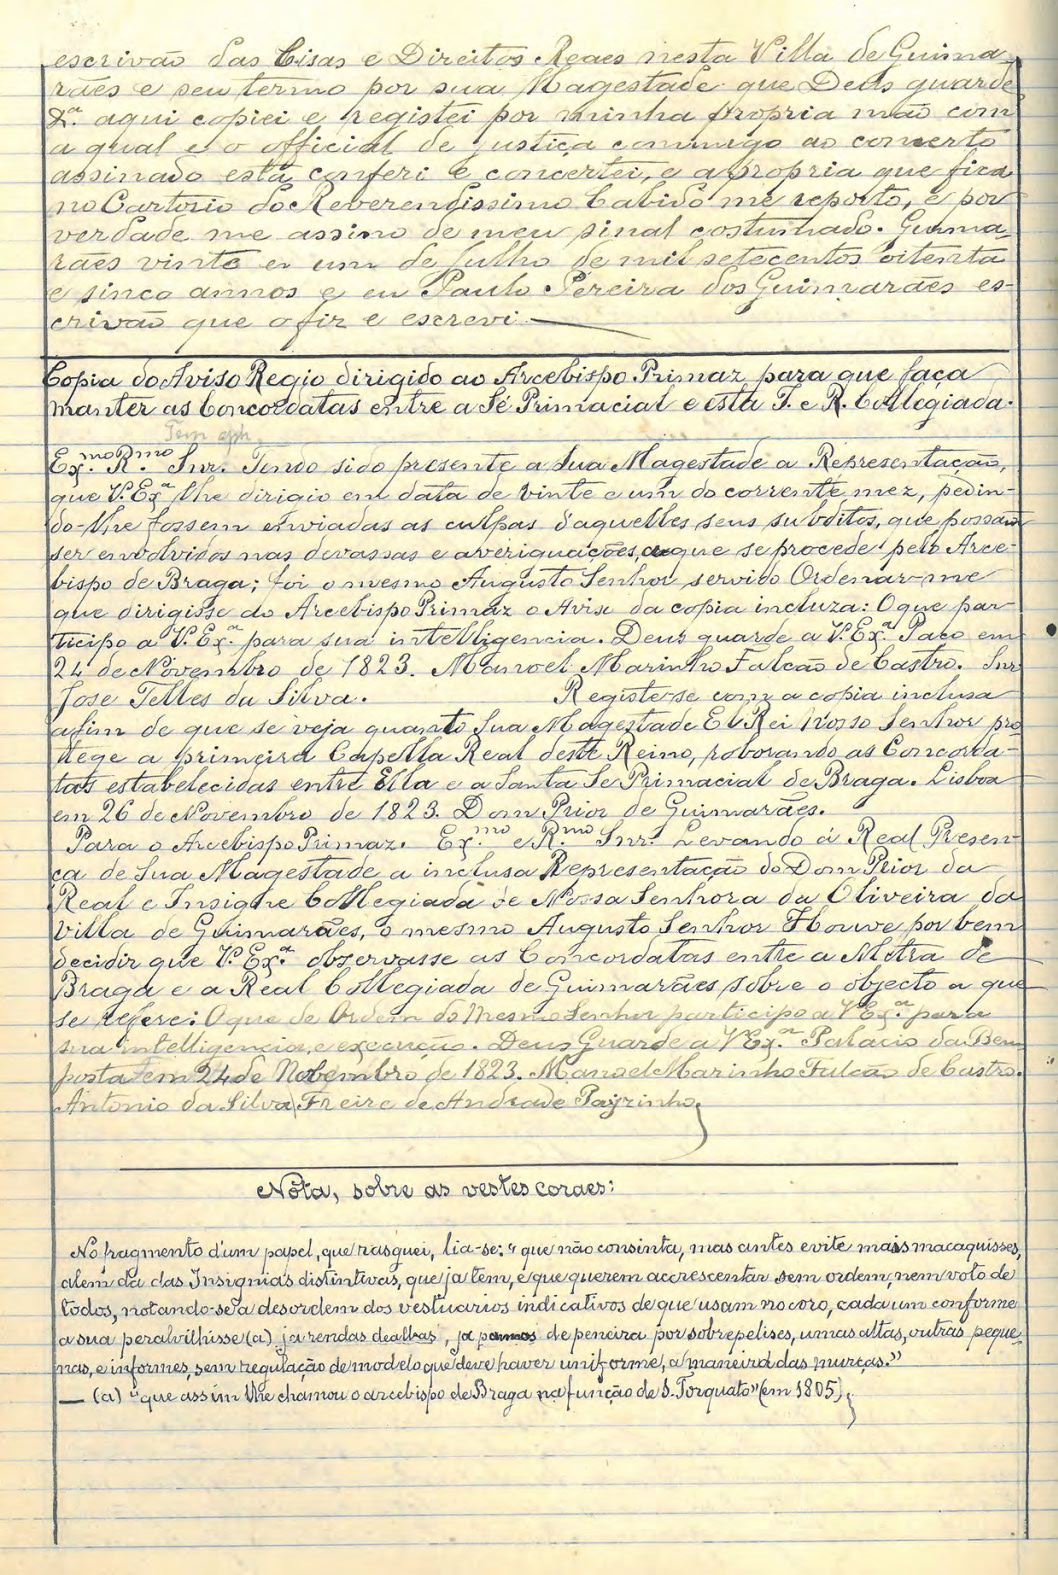 escrivão das Cisas e Direitos Reaes nesta Villa de Guima-
rães e seu termo por sua Magestade que Deus guarde
&ª. aqui copiei e registei por minha propria mão com
a qual e o official de justiça commigo ao concerto
assinado esta conferi e concertei, e a propria que fica
no Cartorio do Reverendissimo Cabido me reporto, e por
verdade me assino de meu sinal costumado. Guima-
rães vinte e um de Julho de mil setecentos oitenta
e sinco annos e eu Paulo Pereira dos Guimarães es-
crivão que o fiz e escrevi.
Copia do Aviso Regio dirigido ao Arcebispo Primaz para que faça
manter as Concordatas entre a Sé Primacial e esta I. e R. Collegiada.
Tem aph
Ex.mo R.mo Snr. Tendo sido presente a Sua Magestade a Representação,
que V. Ex.ª lhe dirigio em data de vinte e um do corrente mez, pedin-
do-lhe fossem enviadas as culpas d'aquelles seus subditos, que possam
ser envolvidos nas devassas e averiguações, a que se procede pelo Arce-
bispo de Braga; foi o mesmo Augusto Senhor servido Ordenar-me
que dirigisse ao Arcebispo Primaz o Aviso da copia incluza: O que par-
ticipo a V. Ex.ª para sua intelligencia. Deus guarde a V. Ex.ª Paço em
24 de Novembro de 1823. Manoel Marinho Falcão de Castro. Snr
Jose Telles da Silva. Registe-se com a copia inclusa
afim de que se veja quanto Sua Magestade El Rei Nosso Senhor pro
tege a primeira Capella Real deste Reino, roborando as Concorda-
tas estabelecidas entre Ella e a Santa Se Primacial de Braga. Lisboa
em 26 de Novembro de 1823. Dom Prior de Guimarães.
Para o Arcebispo Primaz. Ex.mo e R.mo Snr. Levando á Real Presen-
ça de Sua Magestade a inclusa Representação do Dom Prior da
Real e Insigne Collegiada de Nossa Senhora da Oliveira da
Villa de Guimarães, o mesmo Augusto Senhor Houve por bem
decidir que V. Ex.ª observasse as Concordatas entre a Mitra de
Braga e a Real Collegiada de Guimarães sobre o objecto a que
se refere: O que de Ordem do Mesmo Senhor participo a V Ex.ª para
sua intelligencia, e execução. Deus Guarde a V Ex.ª Palacio da Bem
posta em 24 de Novembro de 1823. Manoel Marinho Falcão de Castro.
Antonio da Silva Freire de Andrade Payrinho.
Nota, sobre as vestes coraes:
No fragmento d'um papel, que rasguei, lia-se: "que não consinta, mas antes evite mais macaquisses,
alem da das Insignias distintivas, que ja tem, e que querem accrescentar sem ordem, nem voto de
todos, notando-se a desordem dos vestuarios indicativos de que usam no coro, cada um conforme
a sua peralvilhisse (a) ja rendas dealbas, ja pannos de peneira por sobrepelises, umas altas, outras peque
nas, e informes, sem regulação de modelo que deve haver uniforme, a maneira das murças."
— (a) "que assim lhe chamou o arcebispo de Braga na função de S. Torquato" (em 1805).